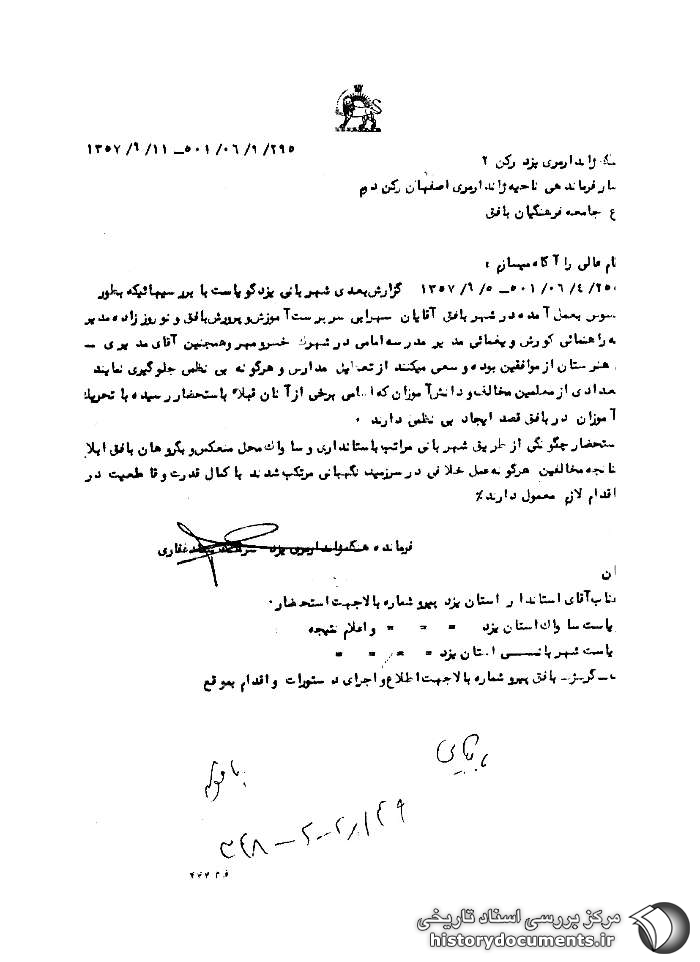 ۵۰۱/۰۶/۹/۲۹۵ــ ۱۳۵۷/۹/۱۱
ژاندارمری یزد رکن ۲
فرماندهی ناحیه ژاندارمری اصفهان رکن دوم
ع جامعه فرهنگیان بافق
عالی را آگاه میسازم :
۵۰۱/۰۶/۴/۲۵۰ــ ۱۳۵۷/۹/۵ گزارش بعدی شهربانی یزد گویاست با بررسیهائیکه بطور
بعمل آمده در شهر بافق آقایان سهرابی سرپرست آموزش و پرورش بافق و نوروززاده مدیر
راهنمائی کورش و یغمائی مدیر مدرسه امامی در شهرک خسرومهر و همچنین آقای مدیری ــ
هنرستان از موافقین بوده و سعی میکنند از تعطیل مدارس و هرگونه بی نظمی جلوگیری نمایند
تعدادی از معلمین مخالف و دانش آموزان که اسامی برخی از آنان قبلا" باستحضار رسیده با تحریک
آموزان در بافق قصد ایجاد بی نظمی دارند ۰
ستحضار چگونگی از طریق شهربانی مراتب باستانداری و ساواک محل منعکس و بگروهان بافق ابلا
نانچه مخالفین هرگونه عمل خلافی در سرزمین نگهبانی مرتکب شدند با کمال قدرت و قاطعیت در
اقدام لازم معمول دارند٪
فرمانده هنگ ژاندارمری یزد غفاری
ان
جناب آقای استاندار استان یزد پیرو شماره بالا جهت استحضار ۰
یاست ساواک استان یزد = = = و اعلام نتیجه
یاست شهربانی استان یزد = = =
گروهان بافق پیرو شماره بالا جهت اطلاع و اجرای دستورات و اقدام بموقع
بایگانی
۳۴۸ – ۲ – ۲/۱۴۹
ف م ۴۶۷
مرکز بررسی اسناد تاریخی
historydocuments.ir